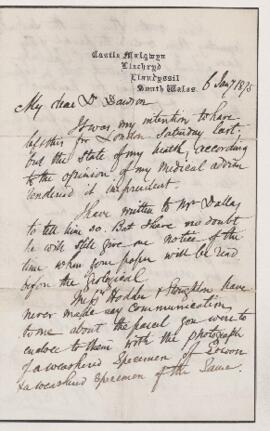 Castle Malgwyn
Llechryd
Llandyssil
South Wales.
6 Jany 1875
My dear Dr Dawson
It was my intention to have
left this for London Saturday last,
but the state of my health, according
to the opinion of my Medical adviser
rendered it imprudent.
I have written to Mr Dallas
to tell him so. But I have no doubt
he will still give me notice of the
time when your paper will be read
before the Geological
Messrs Hodder & Stoughton have
never made any communication
to me about the parcel you were to
enclose to them with the photograph
of a weathered Specimen of Eozoon
& a weathered specimen of the Same.